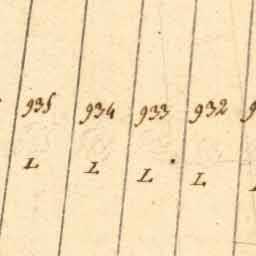 935 934 933 932
L L L L